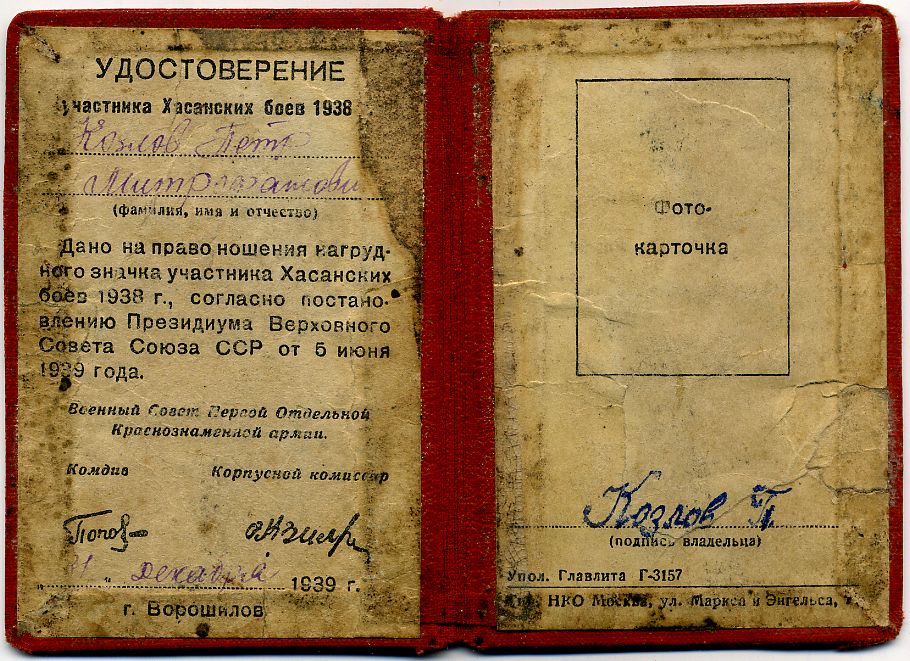 УДОСТОВЕРЕНИЕ
участника Хасанских боев 1938
Козлов Петр
Митрофанович
(фамилия, имя и отчество)
Дано на право ношения нагруд-
ного значка участника Хасанских
боев 1938 г., согласно постано-
влению Президиума Верховного
Совета Союза ССР от 5 июня
1939 года.
Военный Совет Первой Отдельной
Краснознаменной армии.
Комдив Корпусной комиссар
Попов
декабря 1939 г.
г. Ворошилов
Фото-
карточка
Козлов П
(подпись владельца)
Упол. Главлита Г-3157
НКО Москва, ул. Маркса и Энгельса,